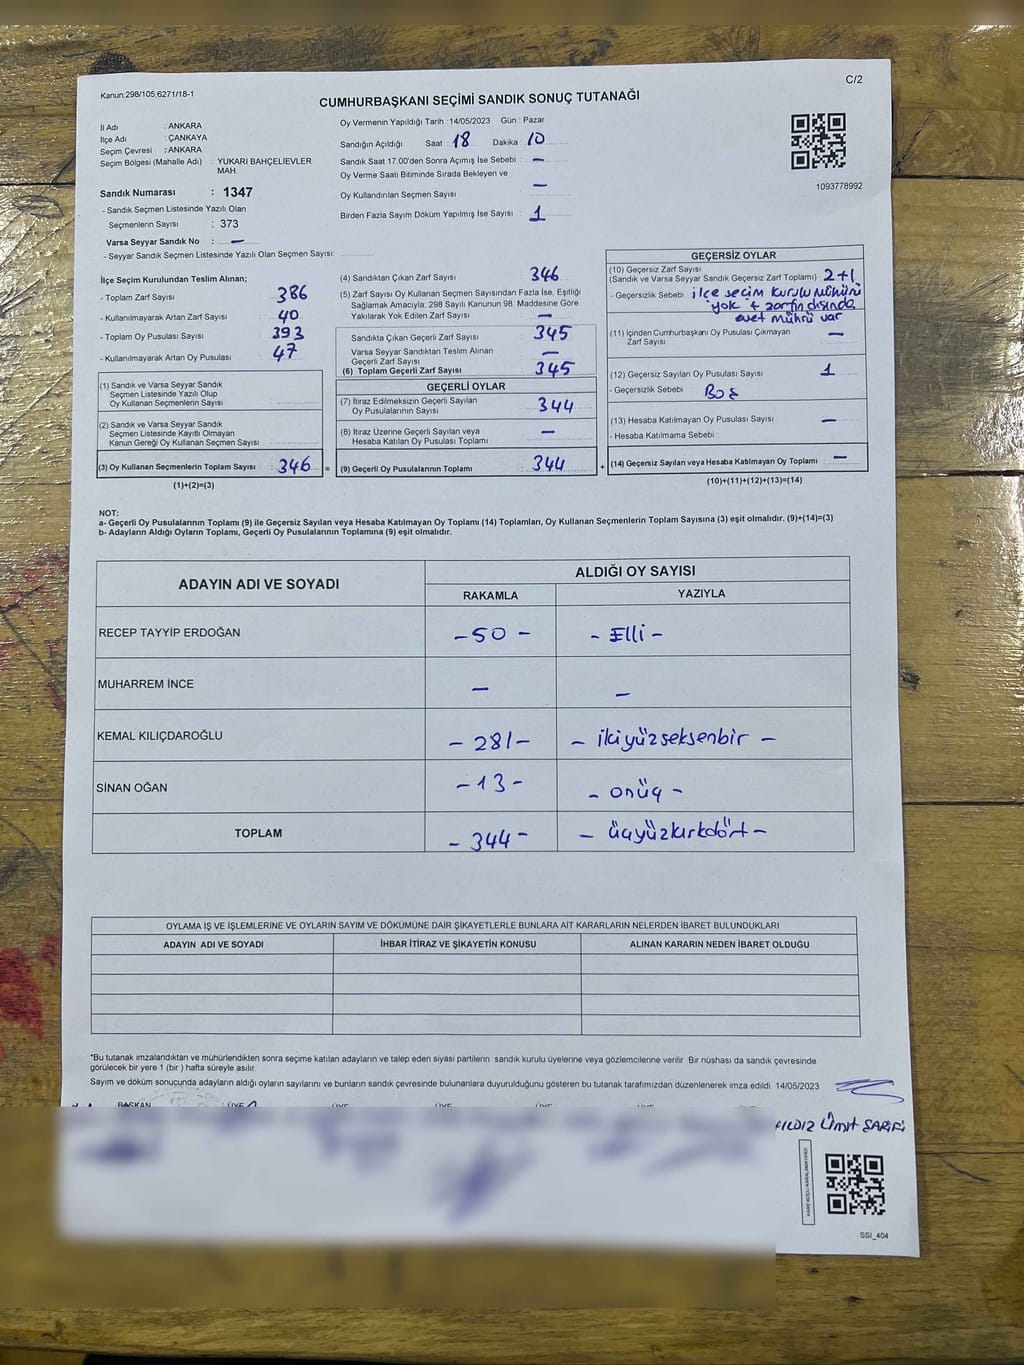 Kanun:298/105;6271/18-1
C/2
CUMHURBAŞKANI SEÇİMİ SANDIK SONUÇ TUTANAĞI
İl Adı : ANKARA
İlçe Adı : ÇANKAYA
Seçim Çevresi : ANKARA
Seçim Bölgesi (Mahalle Adı) : YUKARI BAHÇELİEVLER
MAH.
Sandık Numarası : 1347
- Sandık Seçmen Listesinde Yazılı Olan
Seçmenlerin Sayısı : 373
Varsa Seyyar Sandık No : —
- Seyyar Sandık Seçmen Listesinde Yazılı Olan Seçmen Sayısı:
Oy Vermenin Yapıldığı Tarih : 14/05/2023 Gün : Pazar
Sandığın Açıldığı Saat : 18 Dakika : 10
Sandık Saat 17:00'den Sonra Açımış İse Sebebi : —
Oy Verme Saati Bitiminde Sırada Bekleyen ve
Oy Kullandırılan Seçmen Sayısı : —
Birden Fazla Sayım Döküm Yapılmış İse Sayısı : 1
1093778992
İlçe Seçim Kurulundan Teslim Alınan;
- Toplam Zarf Sayısı : 386
- Kullanılmayarak Artan Zarf Sayısı : 40
- Toplam Oy Pusulası Sayısı : 393
- Kullanılmayarak Artan Oy Pusulası : 47
(1) Sandık ve Varsa Seyyar Sandık
Seçmen Listesinde Yazılı Olup
Oy Kullanan Seçmenlerin Sayısı
(2) Sandık ve Varsa Seyyar Sandık
Seçmen Listesinde Kayıtlı Olmayan
Kanun Gereği Oy Kullanan Seçmen Sayısı
(3) Oy Kullanan Seçmenlerin Toplam Sayısı : 346 =
(1)+(2)=(3)
(4) Sandıktan Çıkan Zarf Sayısı : 346
(5) Zarf Sayısı Oy Kullanan Seçmen Sayısından Fazla İse, Eşitliği
Sağlamak Amacıyla, 298 Sayılı Kanunun 98. Maddesine Göre
Yakılarak Yok Edilen Zarf Sayısı : —
Sandıkta Çıkan Geçerli Zarf Sayısı : 345
Varsa Seyyar Sandıktan Teslim Alınan
Geçerli Zarf Sayısı : —
(6) Toplam Geçerli Zarf Sayısı : 345
GEÇERLİ OYLAR
(7) İtiraz Edilmeksizin Geçerli Sayılan
Oy Pusulalarının Sayısı : 344
(8) İtiraz Üzerine Geçerli Sayılan veya
Hesaba Katılan Oy Pusulası Toplamı : —
(9) Geçerli Oy Pusulalarının Toplamı : 344 +
GEÇERSİZ OYLAR
(10) Geçersiz Zarf Sayısı
(Sandık ve Varsa Seyyar Sandık Geçersiz Zarf Toplamı) : 2+1
- Geçersizlik Sebebi : ilçe seçim kurulu mührü
yok + zarfın dışında
evet mührü var
(11) İçinden Cumhurbaşkanı Oy Pusulası Çıkmayan
Zarf Sayısı : —
(12) Geçersiz Sayılan Oy Pusulası Sayısı : 1
- Geçersizlik Sebebi : Boş
(13) Hesaba Katılmayan Oy Pusulası Sayısı : —
- Hesaba Katılmama Sebebi :
(14) Geçersiz Sayılan veya Hesaba Katılmayan Oy Toplamı : —
(10)+(11)+(12)+(13)=(14)
NOT:
a- Geçerli Oy Pusulalarının Toplamı (9) ile Geçersiz Sayılan veya Hesaba Katılmayan Oy Toplamı (14) Toplamları, Oy Kullanan Seçmenlerin Toplam Sayısına (3) eşit olmalıdır. (9)+(14)=(3)
b- Adayların Aldığı Oyların Toplamı, Geçerli Oy Pusulalarının Toplamına (9) eşit olmalıdır.
ADAYIN ADI VE SOYADI ALDIĞI OY SAYISI
RAKAMLA YAZIYLA
RECEP TAYYİP ERDOĞAN -50- -Elli-
MUHARREM İNCE — —
KEMAL KILIÇDAROĞLU -281- -ikiyüzseksenbir-
SİNAN OĞAN -13- -onüç-
TOPLAM -344- -üçyüzkırkdört-
OYLAMA İŞ VE İŞLEMLERİNE VE OYLARIN SAYIM VE DÖKÜMÜNE DAİR ŞİKAYETLERLE BUNLARA AİT KARARLARIN NELERDEN İBARET BULUNDUKLARI
ADAYIN ADI VE SOYADI İHBAR İTİRAZ VE ŞİKAYETİN KONUSU ALINAN KARARIN NEDEN İBARET OLDUĞU
*Bu tutanak imzalandıktan ve mühürlendikten sonra seçime katılan adayların ve talep eden siyasi partilerin sandık kurulu üyelerine veya gözlemcilerine verilir. Bir nüshası da sandık çevresinde
görülecek bir yere 1 (bir) hafta süreyle asılır.
Sayım ve döküm sonucunda adayların aldığı oyların sayılarını ve bunların sandık çevresinde bulunanlara duyurulduğunu gösteren bu tutanak tarafımızdan düzenlenerek imza edildi. 14/05/2023
BAŞKAN ÜYE ÜYE ÜYE ÜYE ÜYE ÜYE
YILDIZ ÜMİT
SSİ_404